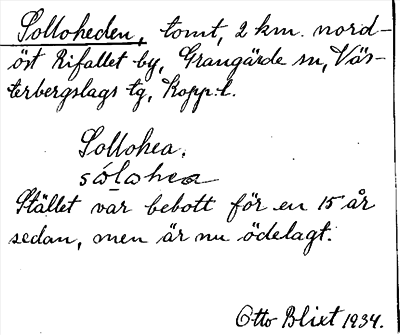 Solloheden, tomt, 2 km. nord-
öst Rifallet by, Grangärde sn, Väs-
terbergslags tg, Kopp:l.
Sollohea.
sólahea
Stället var bebott för en 15 år
sedan, men är nu ödelagt.
Otto Blixt 1934.